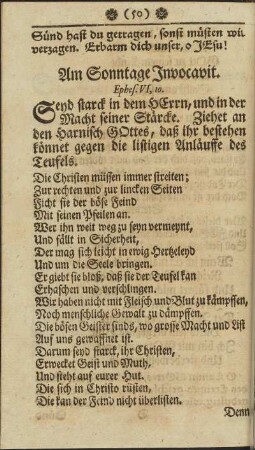 (50)
Sünd hast du getragen, sonst müsten wir
verzagen. Erbarm dich unser, o JEsu!
Am Sonntage Invocavit.
Ephes. VI, 10.
Seyd starck in dem HErrn, und in der
Macht seiner Stärcke. Ziehet an
den Harnisch GOttes, daß ihr bestehen
könnet gegen die listigen Anläuffe des
Teufels.
Die Christen müssen immer streiten;
Zur rechten und zur lincken Seiten
Ficht sie der böse Feind
Mit seinen Pfeilen an.
Wer ihn weit weg zu seyn vermeynt,
Und fällt in Sicherheit,
Der mag sich leicht in ewig Hertzeleyd
Und um die Seele bringen.
Er giebt sie bloß, daß sie der Teufel kan
Erhaschen und verschlingen.
Wir haben nicht mit Fleisch und Blut zu kämpffen,
Noch menschliche Gewalt zu dämpffen.
Die bösen Geister sinds, wo grosse Macht und List
Auf uns gewaffnet ist.
Darum seyd starck, ihr Christen,
Erwecket Geist und Muth,
Und steht auf eurer Hut.
Die sich in Christo rüsten,
Die kan der Feind nicht überlisten.
Denn